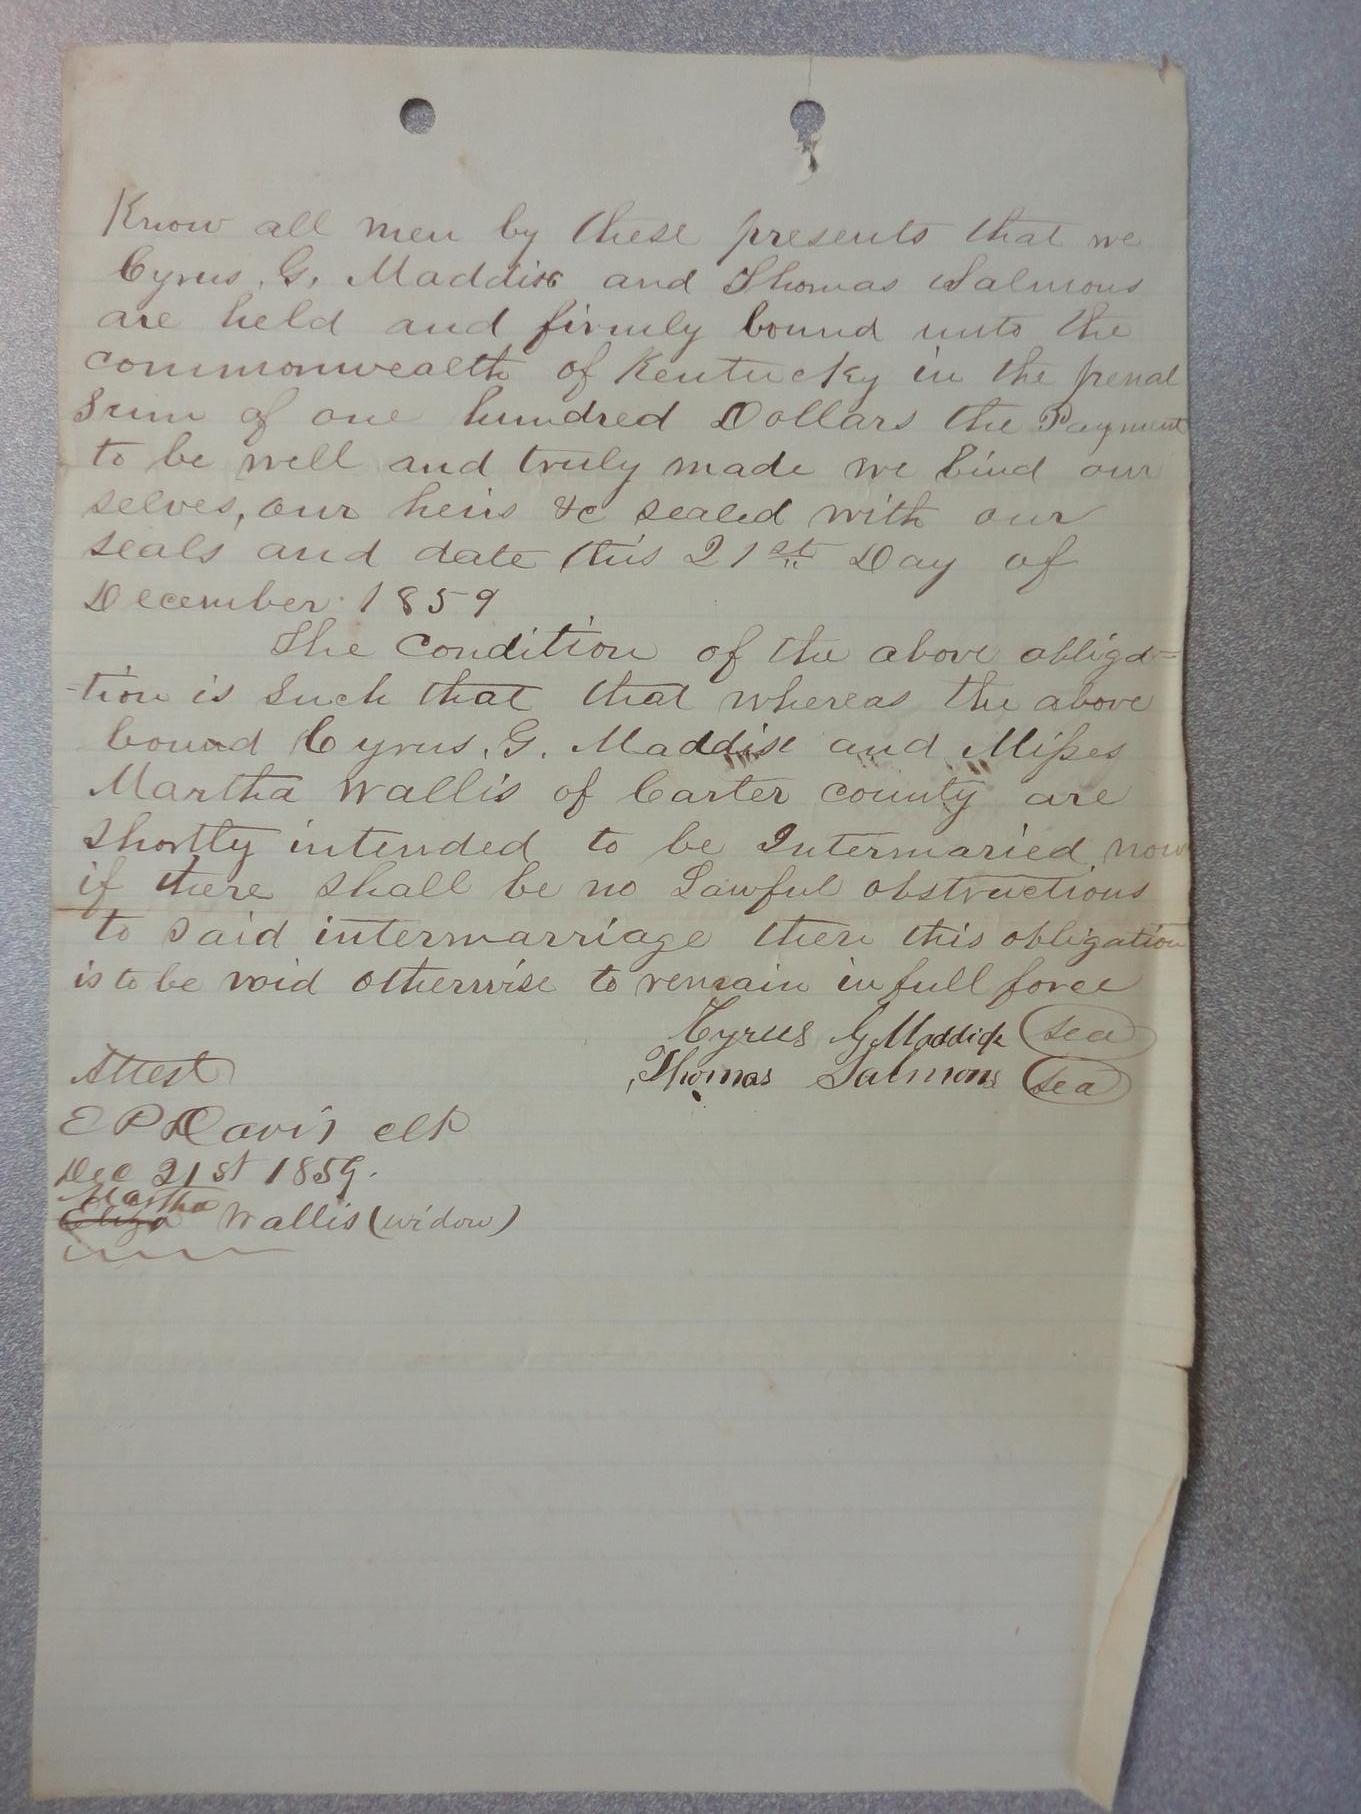 Know all men by these presents that we
Cyrus. G. Maddix and Thomas Salmons
are held and firmly bound unto the
commonwealth of Kentucky in the penal
Sum of one hundred Dollars the Payment
to be well and truly made we bind our
selves, our heirs &c sealed with our
seals and date this 21st Day of
December 1859
The Condition of the above obliga=
-tion is Such that that whereas the above
bound Cyrus. G. Maddix and Misses
Martha Wallis of Carter county are
Shortly intended to be Intermaried now
if there shall be no Lawful obstructions
to said intermarriage then this obligation
is to be void otherwise to remain in full force
Cyrus G Maddick (sea)
Thomas Salmons (sea)
Attest
E P Davis clk
Dec 21st 1859.
Martha
Eliza Wallis (widow)